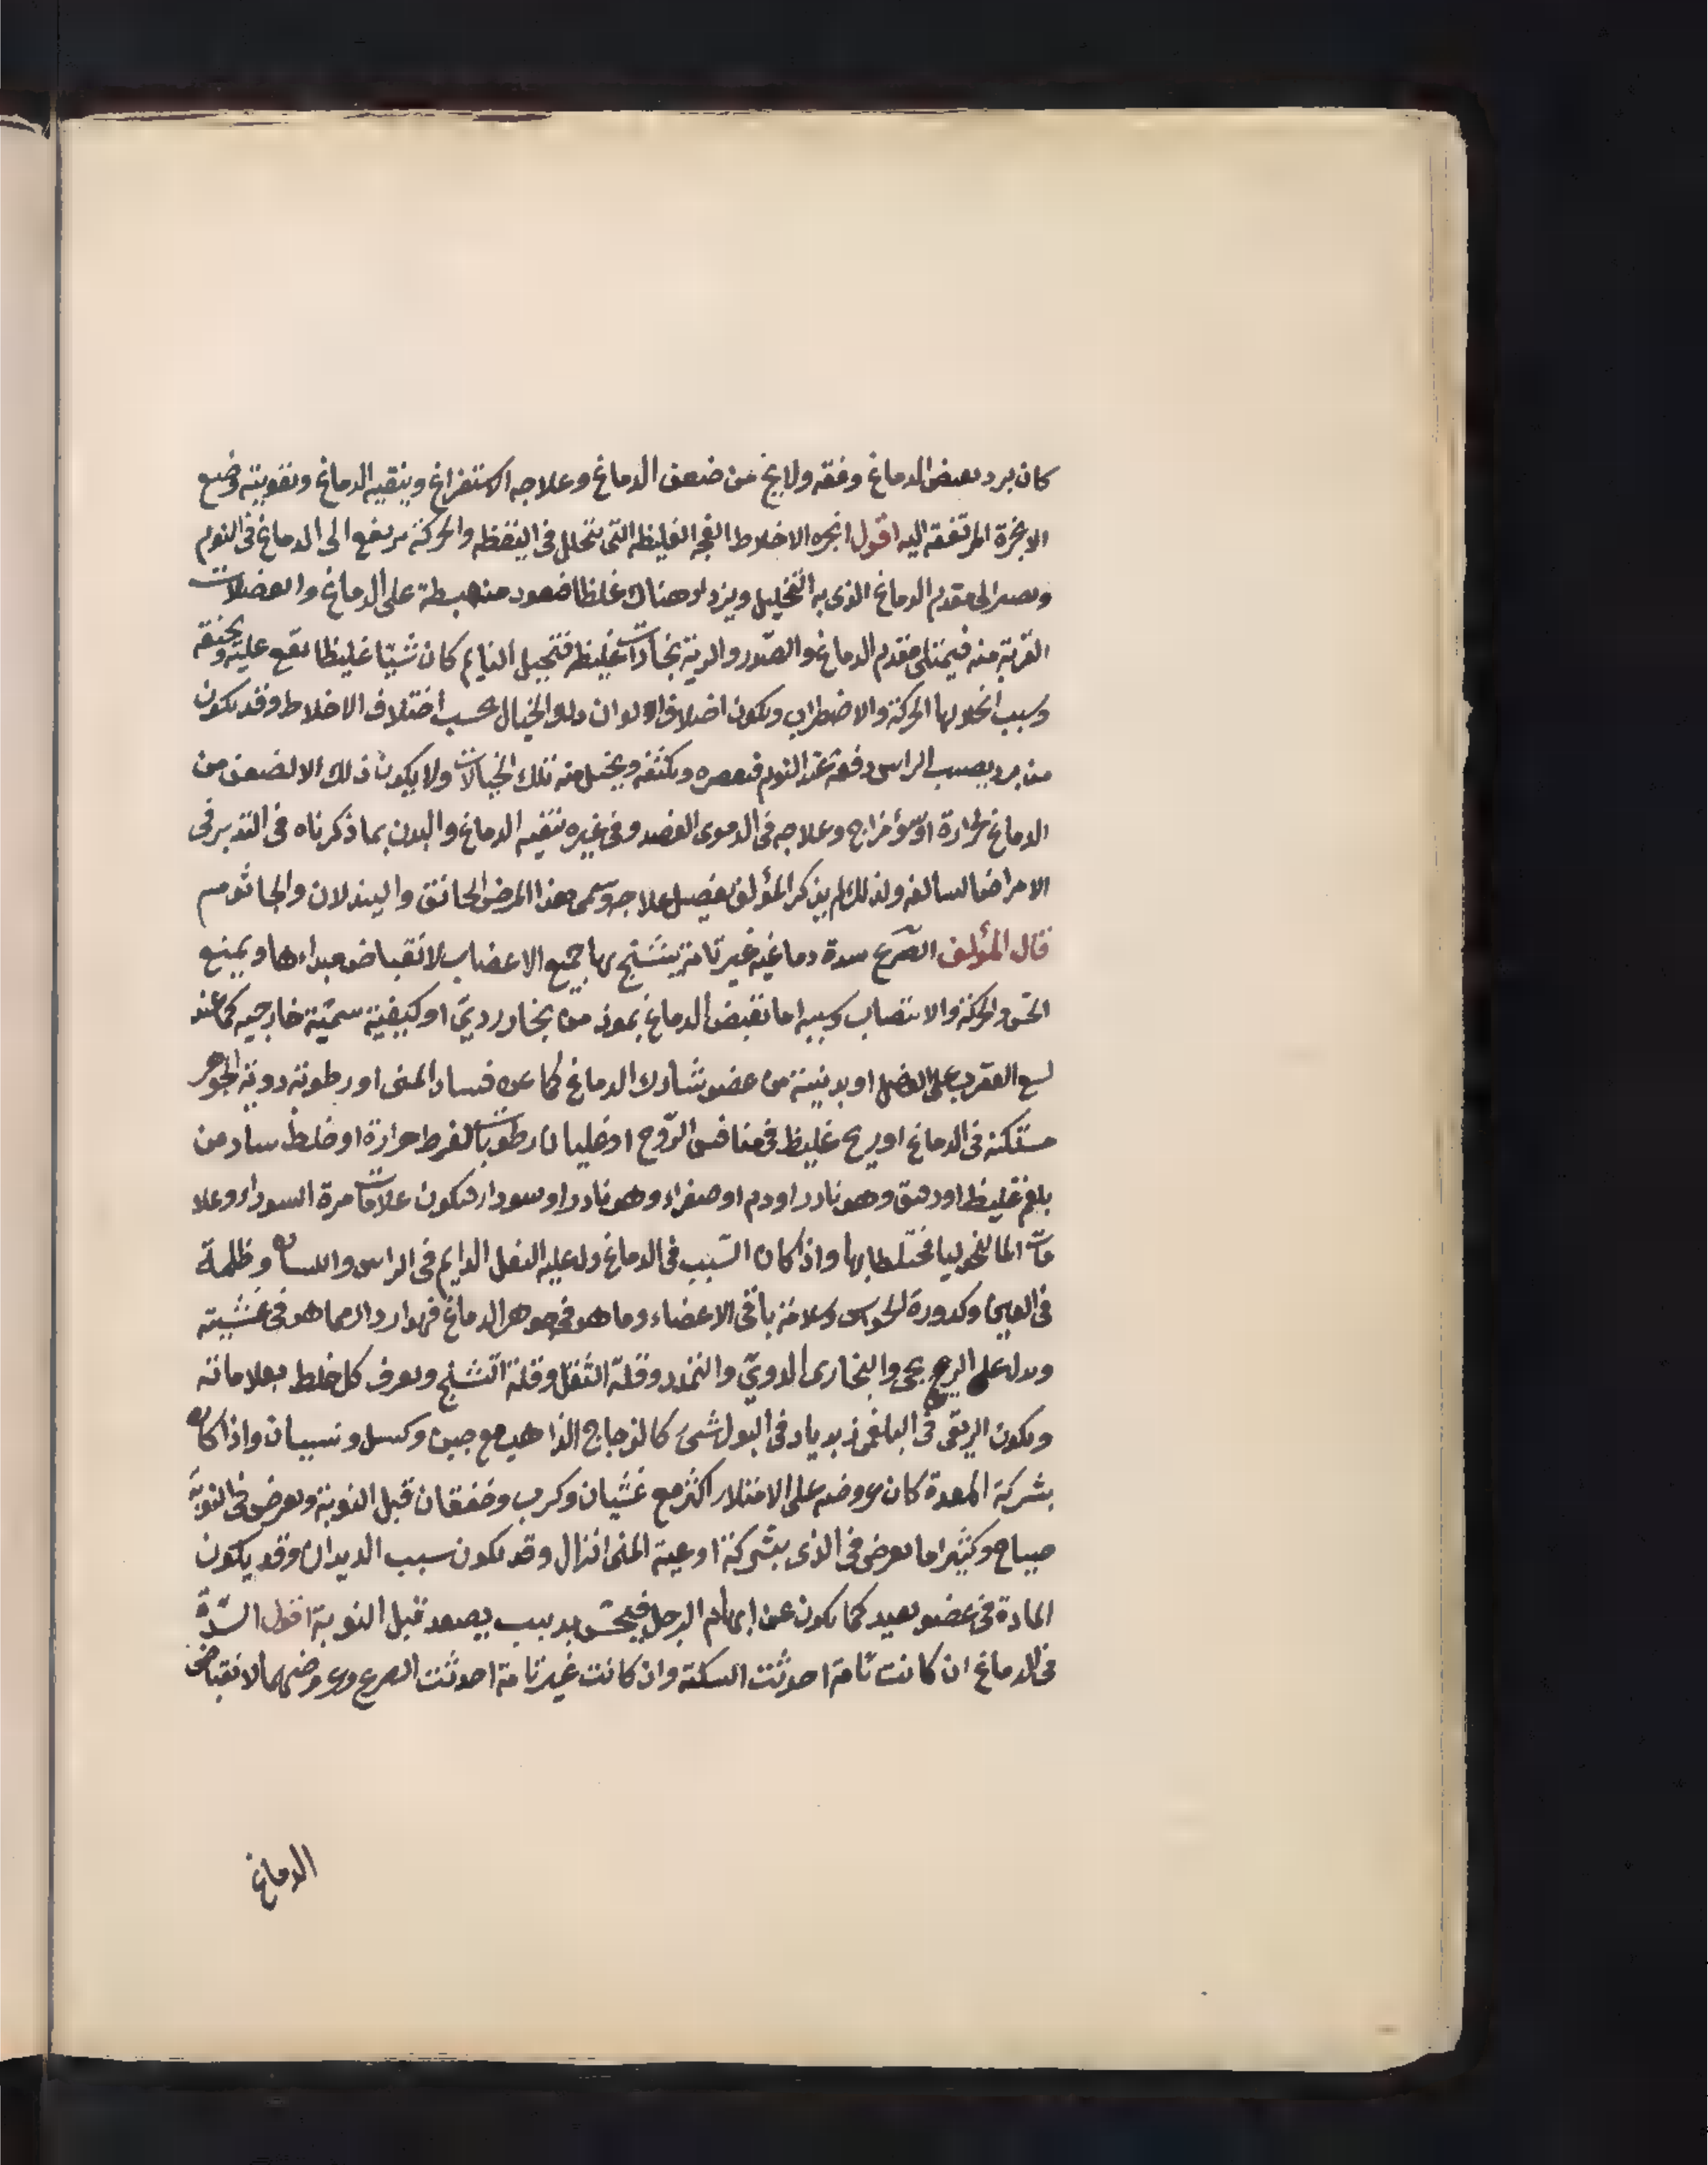 كان برد يعض الدماغ دفعة ولا يخ من ضعف الدماغ وعلاجه الاستفراغ وينقيه الدماغ وتقويته وضع
الابخرة المرتفعة اليه اقول انجره الاخلاط الفجه الغليظه التى تتحلل فى اليقظه والحركة يرتفع الى الدماغ فى النوم
ويصير الى مقدم الدماغ الذى به التخليل ويزداد هناك غلظا فعود منهبطة على الدماغ والعضلات
القريبة منه فيمتلى مقدم الدماغ والصدور والرية بخارات غليظه فتخيل النايم كان شيئا غليظا يقع عليه ويخنقه
وسبب انحلولها الحركة والاضطراب ويكون اختلاف الوان ذلك الخيال بحسب اختلاف الاخلاط وقد يكون
من برد يصيب الراس دفعة عند النوم فيعصره ويكثفه ويخيل منه تلك الخيالات ولا يكون ذلك الا لضعف من
الدماغ لحرارة او سؤ مزاج وعلاجه فى الدموى الفصد وفى غيره تنقيه الدماغ والبدن بما ذكرناه فى التدبير فى
الامراض السالفه ولذلك لم يذكر المؤلف تفصيل علاجه وسمى هذا المرض الخانق والنيدلان والجاثوم
قال المؤلف الصرع سدة دماغيه غير تامة يتشنج بها جميع الاعضاب لانقباض مبداءها ويمنع
الحس والحركة والانتصاب وسببه اما تقبض الدماغ بموذ من بخار رديى او كيفية سمية خارجيه كما عند
لسع العقرب على العضل او بدنيية من عضو شارك الدماغ كما عن فساد المنى او رطوبة رديه الجوهر
مستكنه فى الدماغ او ريح غليظ فى منافس الروح او غليان رطوبات لفرط حرارة او خلط ساد من
بلغم غليظ او رقيق وهو نادر او دم او صفراء وهو نادر او سودا فتكون علامات مرة السودا وعلا
مات المالنخوليا مختلطا بها واذا كان السبب فى الدماغ دل عليه الثقل الدايم فى الراس واللسان وظلمة
فى العين وكدورة الحواس وسلامة باقى الاعضاء وما هو فى جوهر الدماغ فهو اردا مما هو فى غشيته
ويدل على الريح يحى والبخارى الدوى والتمدد وقلة الثقل وقلة التشنج ويعرف كل خلط بعلاماته
ويكون الريقى فى البلغمى زبديا وفى البول شئ كالزجاج الذاهب مع جبن وكسل ونسيان واذا كان
بشركة المعدة كان عروضه على الامتلاء اكثر مع غشيان وكرب وخفقان قبل النوبة ويعرض فى النوبة
صياح وكثيرا ما يعرض فى الذى بشركة اوعية المنى انزال وقد يكون سبب الديدان وقد يكون
المادة فى عضو بعيد كما يكون عن ابهام الرجل فيحس بدبيب يصعد قبل النوبة اقول السدة
فى الدماغ ان كانت تامة احدثت السكتة وان كانت غير تامة احدثت الصرع وعروضهما لانقباض
الدماغ